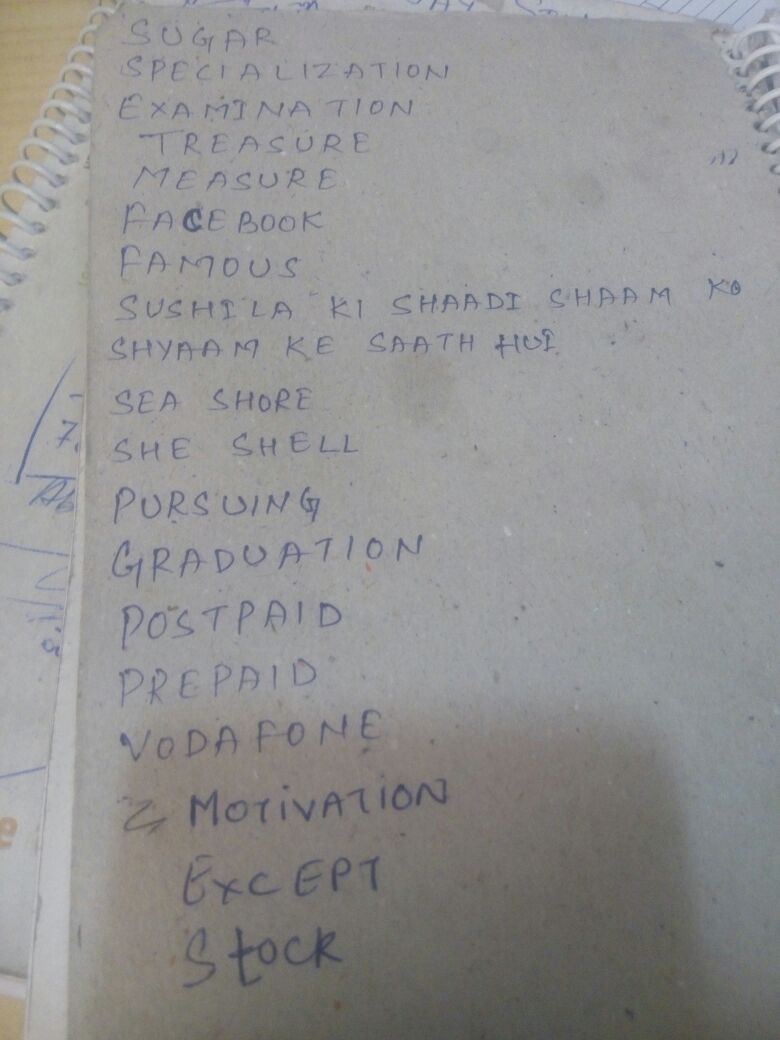 SUGAR
SPECIALIZATION
EXAMINATION
TREASURE
MEASURE
FACEBOOK
FAMOUS
SUSHILA KI SHAADI SHAAM KO
SHYAAM KE SAATH HUI
SEA SHORE
SHE SHELL
PURSUING
GRADUATION
POSTPAID
PREPAID
VODAFONE
MOTIVATION
EXCEPT
Stock